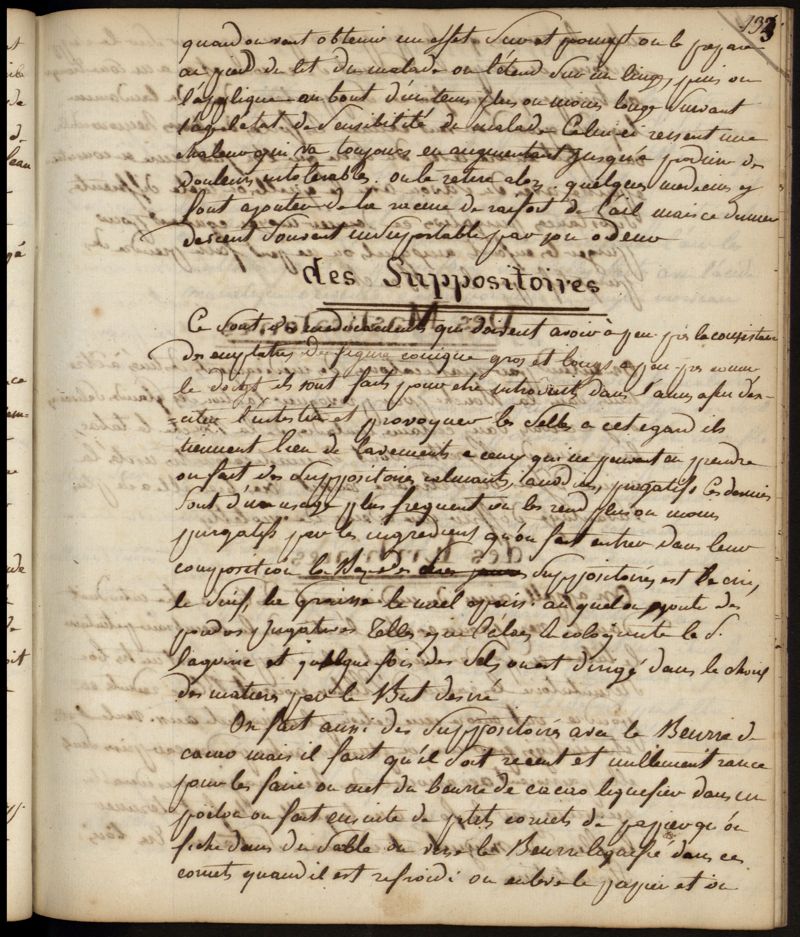 133
quand on veut obtenir un effet sur et prompt on le prepare
au pied du lit du malade on l'étend sur un linge, puis on
l'applique au bout d'un tems plus ou moins long suivant
l'état de sensibilité du malade Celui ci ressent une
chaleur qui va toujours en augmentant jusqu'a produire des
douleurs intolerables. on le retire alors. quelques medecins y
font ajouter de la racine de raifort de l'ail mais ce dernier
devient souvent insuportable par son odeur
des Suppositoires
Ce sont des medicaments qui doivent avoir à peu près la consistance
des emplatres de figure conique gros et longs a peu près comme
le doigt ils sont faits pour etre introduits dans l'anus afin d'ex-
=citer l'intestin et provoquer les selles a cet egard ils
tiennent lieu de lavements a ceux qui ne peuvent en prendre
on fait des suppositoires calmants, anodins, purgatifs Ces derniers
sont d'un usage plus frequent on les rend plus ou moins
purgatifs par les ingredients qu'on fait entrer dans leur
composition la Baze des suppositoires est la cire,
le Suif, la Graisse le miel epaissi. auquel on ajoute des
poudres purgatives telles que l'aloes la coloquinte le S.
et quelque fois des Sels on est dirigé dans le choix
des matieres par le But desiré
On fait aussi des suppositoires avec le Beurre de
cacao mais il faut qu'il soit recent et nullement rance
pour les faire on met du beurre de cacao liquefier dans un
poêlon on fait ensuite de petits cornets de papier qu'on
fiche dans du sable on verse le Beurre liquefié dans ces
cornets quand il est refroidi on enleve le papier et on